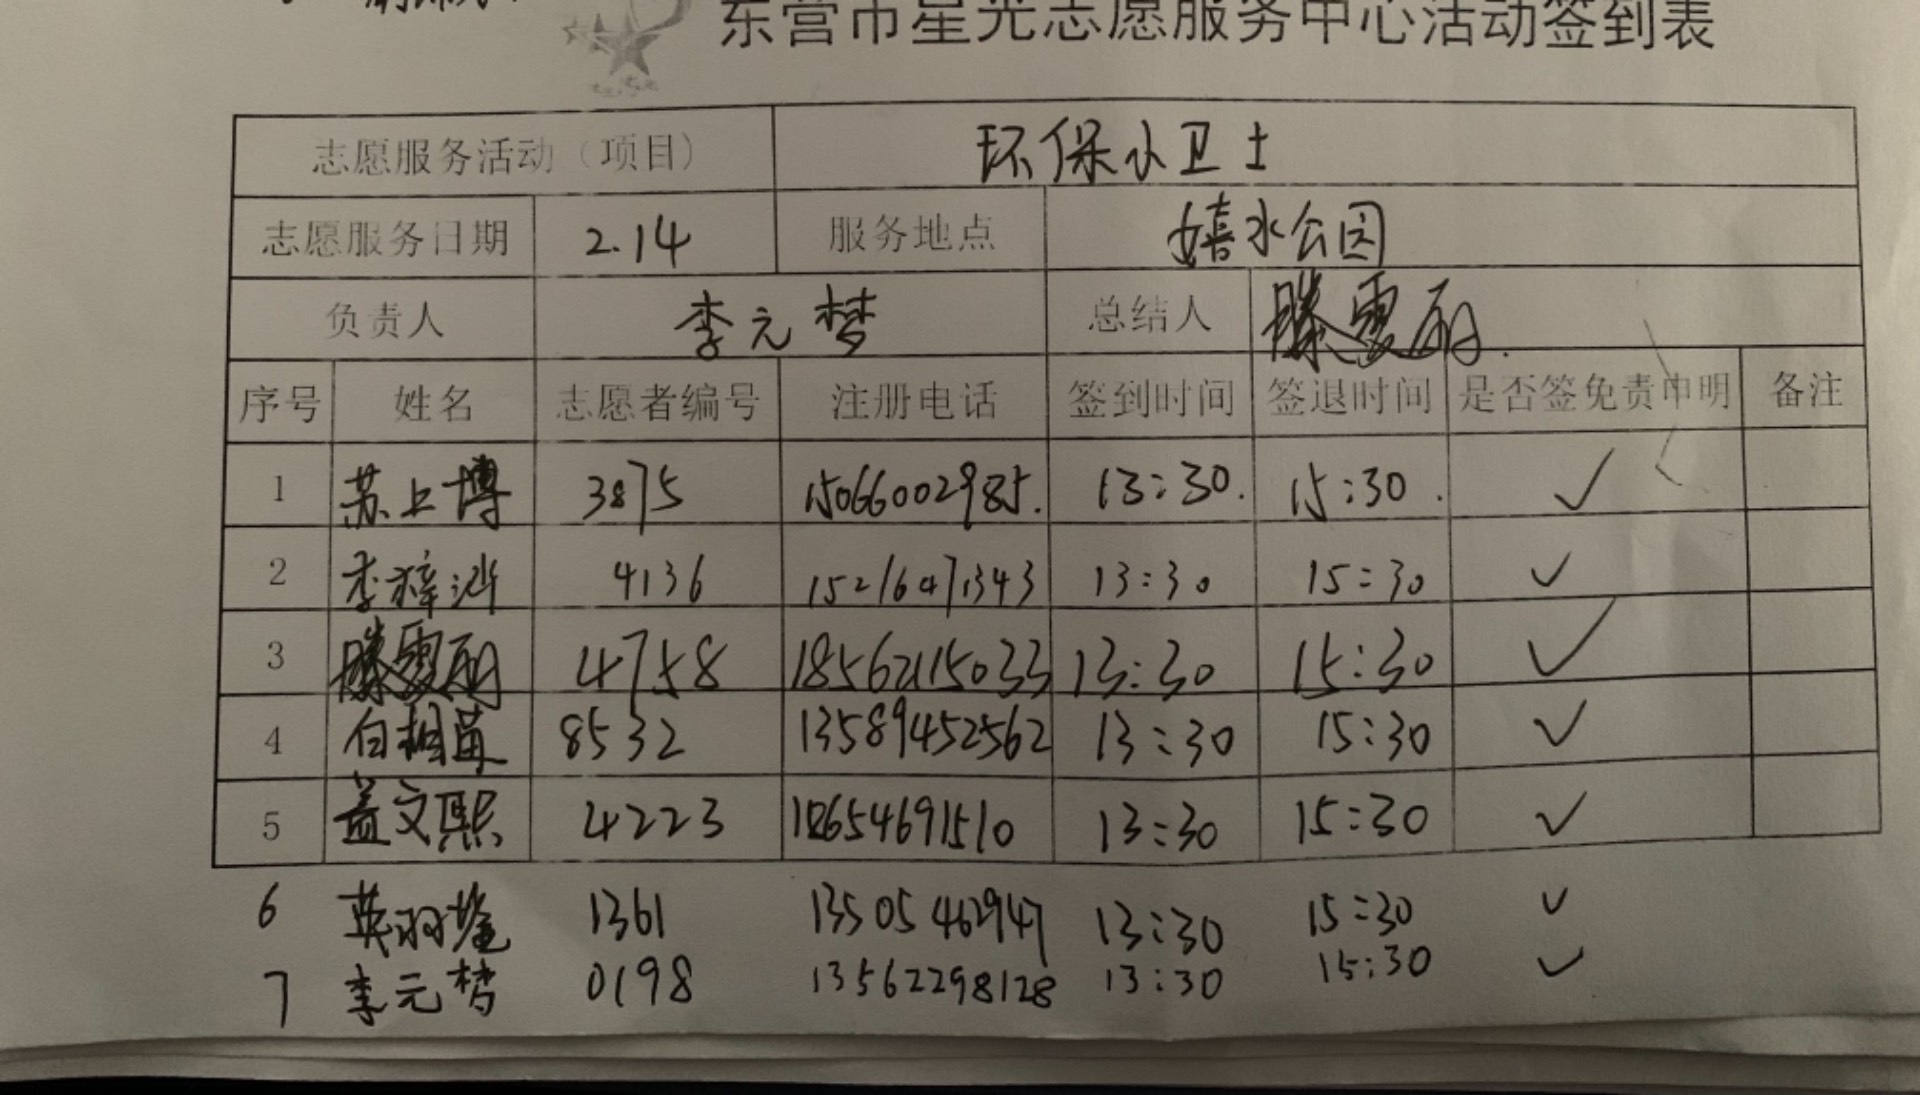 东营市星光志愿服务中心活动签到表
志愿服务活动（项目） 环保小卫士
志愿服务日期 2.14 服务地点 嬉水公园
负责人 李元梦 总结人 滕雯丽
序号 姓名 志愿者编号 注册电话 签到时间 签退时间 是否签免责申明 备注
1 苏上博 3875 15066002985. 13:30. 15:30. ✓
2 李梓 4136 15216471343 13:30 15:30 ✓
3 滕雯丽 4758 18562115033 13:30 15:30 ✓
4 白 8532 13589452562 13:30 15:30 ✓
5 盖文熙 4223 4691510 13:30 15:30 ✓
6 1361 13505462947 13:30 15:30 ✓
7 李元梦 0198 13562298128 13:30 15:30 ✓